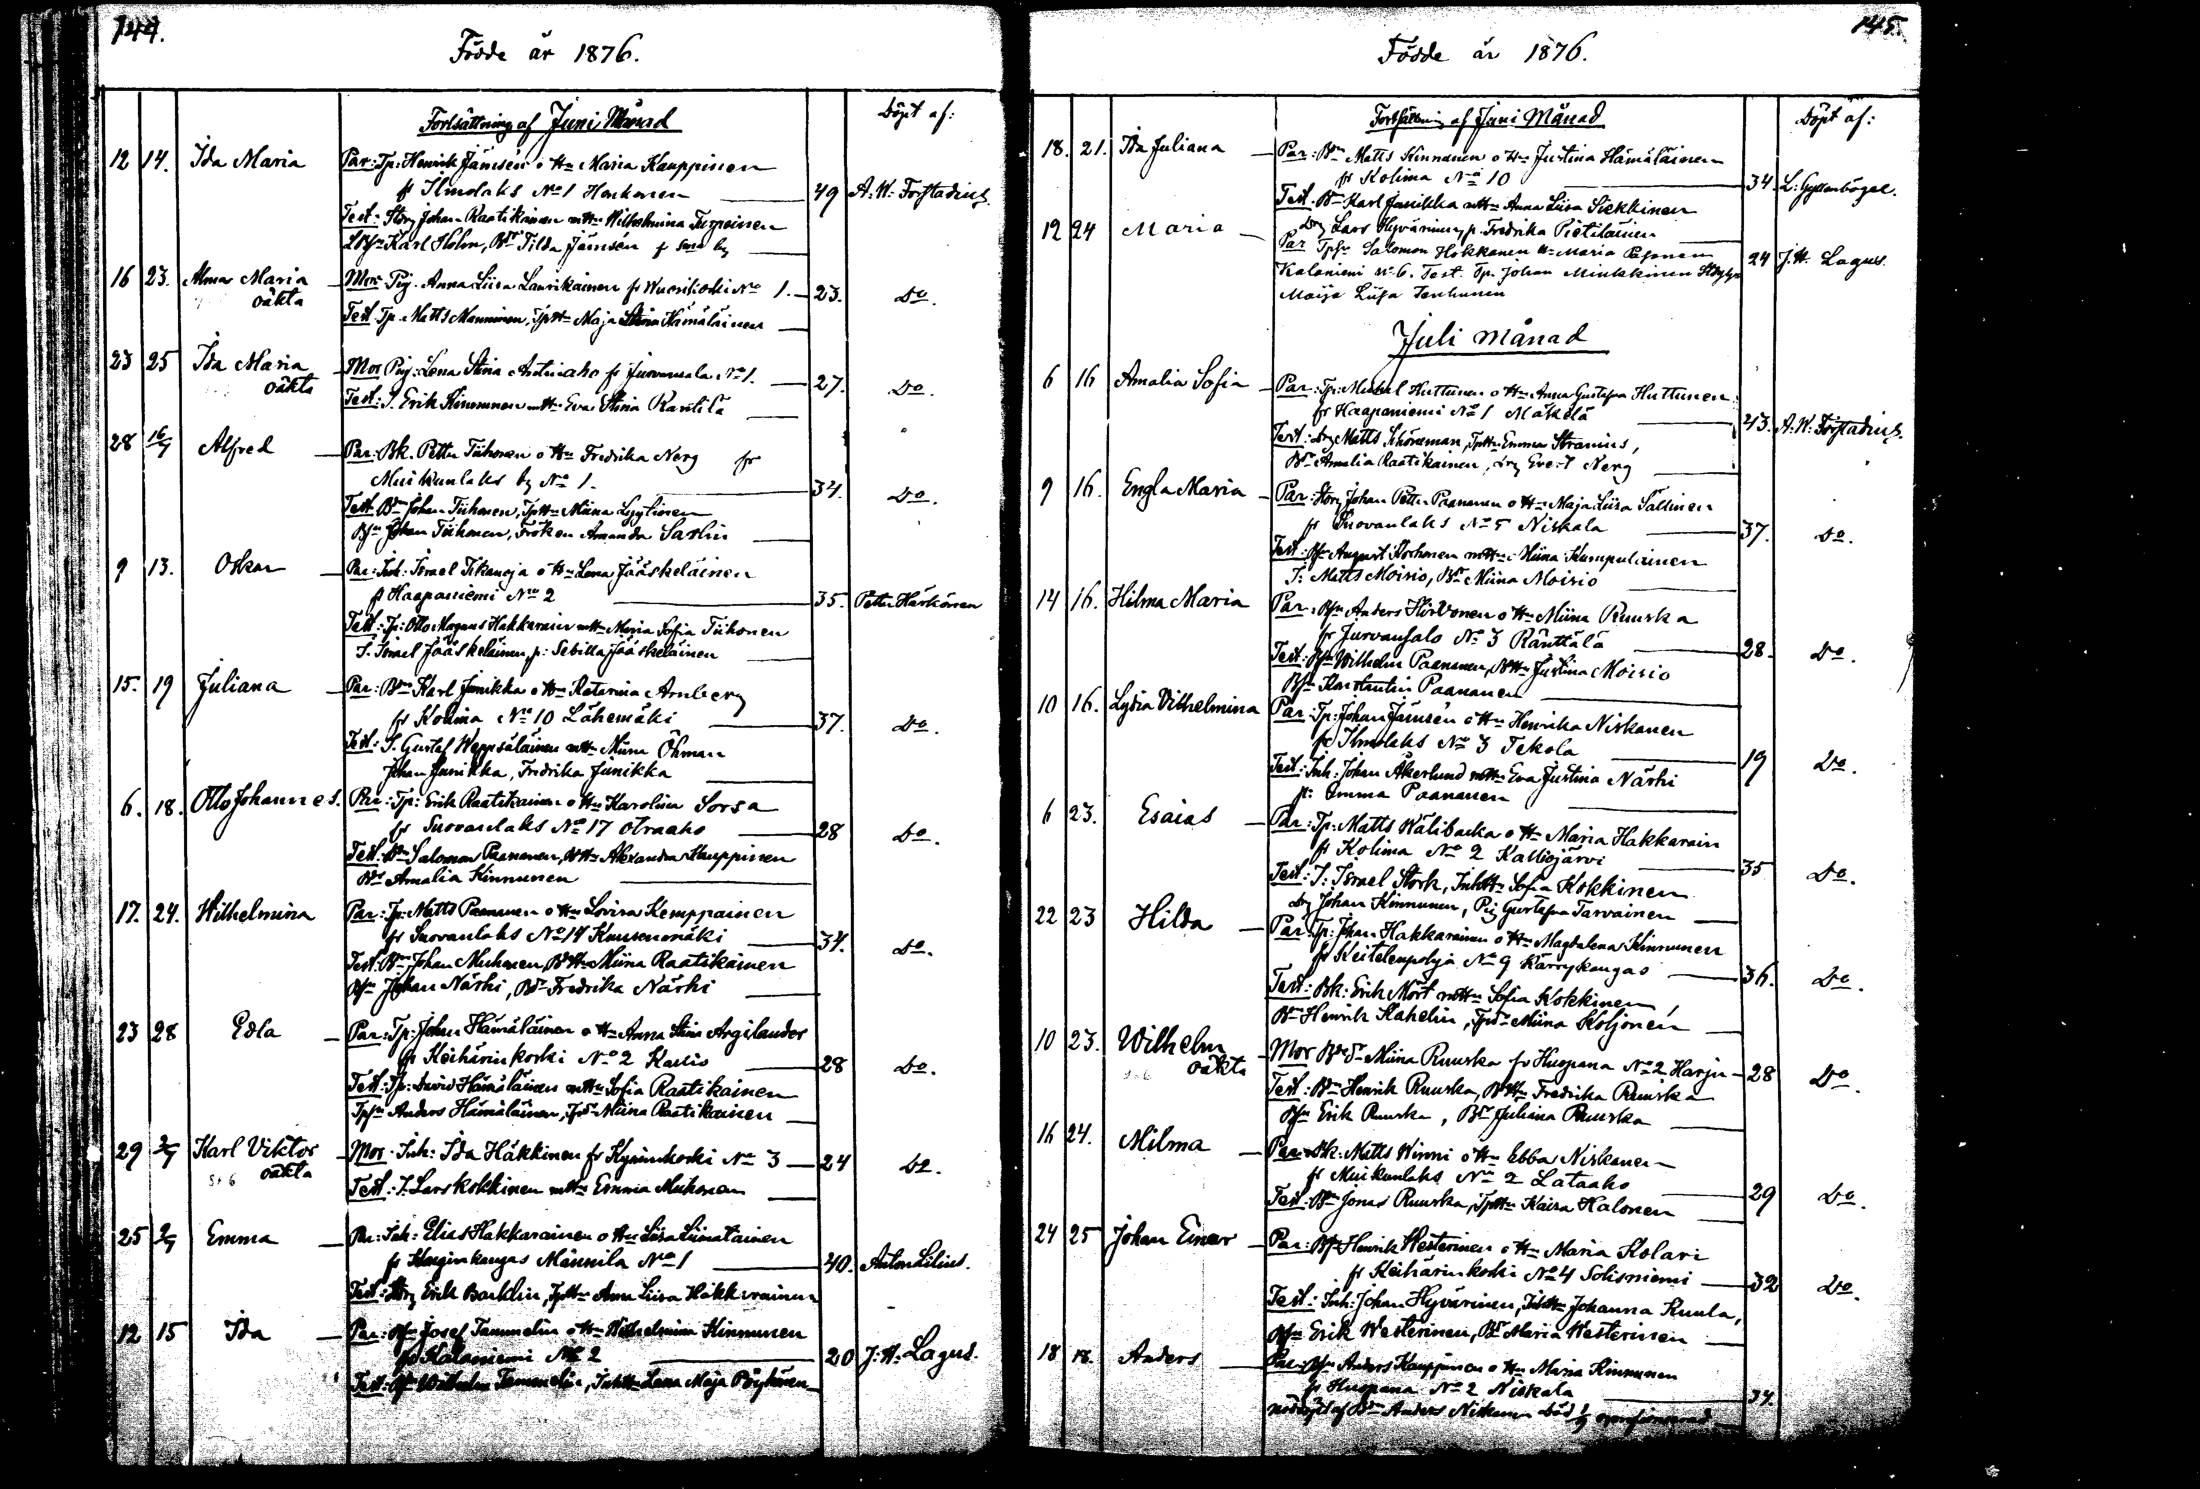 144.
Födde år 1876.
Fortsättning af Juni Månad
Döpt af:
12 14. Ida Maria Par: Tp: Henrik Jämsén o H:u Maria Kauppinen
fr Ilmolaks No 1 Honkonen 49 A. W. Forstadius.
Test: Johan Raatikainen m H:u Wilhelmina Turpeinen
Karl Holm, Tilda Jämsén f
16 23. Alma Maria Mor Pig. Anna Liisa Laurikainen fr No 1. 23. Do.
oäkta
Test Tp. Matts Manninen, Maja Stina Hämäläinen
23 25 Ida Maria Mor Pig: Lena Stina Antinaho fr No 1. 27. Do.
oäkta
Test: S. Erik Kinnunen m H:u Eva Stina Rantila
28 16/7 Alfred Par: Bk. Petter Tiihonen o H:u Fredrika Nerg fr
Muikunlaks by No 1. 34. Do.
Test Johan Tiihonen, Miina Lyytinen
Johan Tiihonen, Fröken Amanda Sarlin
9 13. Oskar Par: Inh: Israel Tikanoja o H:u Lena Jääskeläinen
fr Haapaniemi No 2 35. Petter Härkönen
Test: Tp: Otto Magnus Hakkarain m H:u Maria Sofia Tiihonen
S. Israel Jääskeläinen, p: Sebilla Jääskeläinen
15. 19 Juliana Par: Karl Junikka o H:u Katarina Arnberg
fr Kolima No 10 Lähemäki 37. Do.
Test: S. Gustaf Weppsäläinen m H:u Miina Öhman
Johan Junikka, Fredrika Junikka
6. 18. Otto Johannes. Par: Tp: Erik Raatikainen o H:u Karolina Sorsa
fr Suovanlaks No 17 Otraaho 28 Do.
Test: Salomon Paananen, Alexandra Kauppinen
Amalia Kinnunen
17. 24. Wilhelmina Par: Tp: Matts Paananen o H:u Lovisa Kemppainen
fr Suovanlaks No 14 Kuusenmäki 34. Do.
Test: Johan Muhonen, Miina Raatikainen
Johan Närhi, Fredrika Närhi
23 28 Edla Par: Tp: Johan Hämäläinen o H:u Anna Stina Argilander
fr Keihärinkoski No 2 Kaulio 28 Do.
Test: Tp: David Hämäläinen m H:u Sofia Raatikainen
Anders Hämäläinen, Miina Raatikainen
29 2/7 Karl Viktor Mor: Inh: Ida Häkkinen fr Kyminkoski No 3 24 Do.
oäkta
Test: S. Lars Kokkinen m H:u Emma Muhonen
25 2/7 Emma Par: Inh: Elias Hakkarainen o H:u Liisa Liimatainen
fr Konginkangas Männila No 1 40. Anton Lilius.
Test: Erik Barklin, Anna Liisa Hakkarainen
12 15 Ida Par: Josef Tammelin o H:u Wilhelmina Kinnunen
fr Kalaniemi No 2 20 J. H. Lagus.
Test: Wilhelm Tammelin, Lena Maja Pöyhönen
145.
Födde år 1876.
Fortsättning af Juni Månad
Döpt af:
18. 21. Ida Juliana Par: Matts Kinnunen o H:u Justina Hämäläinen
fr Kolima No 10 34. L: Gyllenbögel.
Test: Karl Junikka m H:u Anna Liisa Siekkinen
Lars Hyvärinen, p. Fredrika Pietiläinen
12 24 Maria Par Salomon Hokkanen H:u Maria Pesonen 24 J. H. Lagus.
Kalaniemi No 6. Test. Tp. Johan Minkkinen
Maija Liisa Tenhunen
Juli månad
6 16 Amalia Sofia Par: Tp: Mickel Huttunen o H:u Anna Gustafva Huttunen
fr Haapaniemi No 1 Mäkelä 43. A. W. Forstadius.
Test: Drg Matts Schöneman, Emma Stranius,
Amalia Raatikainen, Drg Evert Nerg
9 16. Engla Maria Par: Johan Petter Paananen o H:u Maja Liisa Sällinen
fr Suovanlaks No 5 Niskala 37. Do.
Test: August Korhonen m H:u Miina Kumpulainen
S: Matts Moisio, Miina Moisio
14 16. Hilma Maria Par: Anders Hirvonen o H:u Miina Ruuska
fr Jurvansalo No 3 Ränttälä 28. Do.
Test: Wilhelm Paananen, Justina Moisio
Konstantin Paananen
10 16. Lydia Vilhelmina Par: Tp: Johan Jämsén o H:u Henrika Niskanen
fr Ilmolaks No 3 Tekola 19 Do.
Test: Inh: Johan Åkerlund m H:u Eva Justina Närhi
p: Emma Paananen
6 23. Esaias Par: Tp: Matts Wälibacka o H:u Maria Hakkarain
fr Kolima No 2 Kalliojärvi 35 Do.
Test: S: Israel Stork, Sofia Kokkinen
Drg Johan Kinnunen, Pig Gustafva Tarvainen
22 23 Hilda Par: Tp: Johan Hakkarainen o H:u Magdalena Kinnunen
fr Keitelenpohja No 9 Kärrykangas 36. Do.
Test: Bk: Erik Mört m H:u Sofia Kokkinen,
Henrik Kahelin, Miina Koljonen
10 23. Wilhelm Mor Miina Ruuska fr Huopana No 2 Harju 28 Do.
oäkta
Test: Henrik Ruuska, Fredrika Ruuska
Erik Ruuska, Juliana Ruuska
16 24. Milma Par: Bk: Matts Winni o H:u Ebba Niskanen
fr Muikunlaks No 2 Lataaho 29 Do.
Test: Jonas Ruuska, Kaisa Halonen
24 25 Johan Einar Par: Henrik Westerinen o H:u Maria Kolari
fr Keihärinkoski No 4 Solisniemi 32 Do.
Test: Inh: Johan Hyvärinen, Johanna Kuula,
Erik Westerinen, Maria Westerinen
18 18. Anders Par: Anders Kauppinen o H:u Maria Kinnunen
fr Huopana No 2 Niskala 34.
nöddöpt af Anders Niskanen död